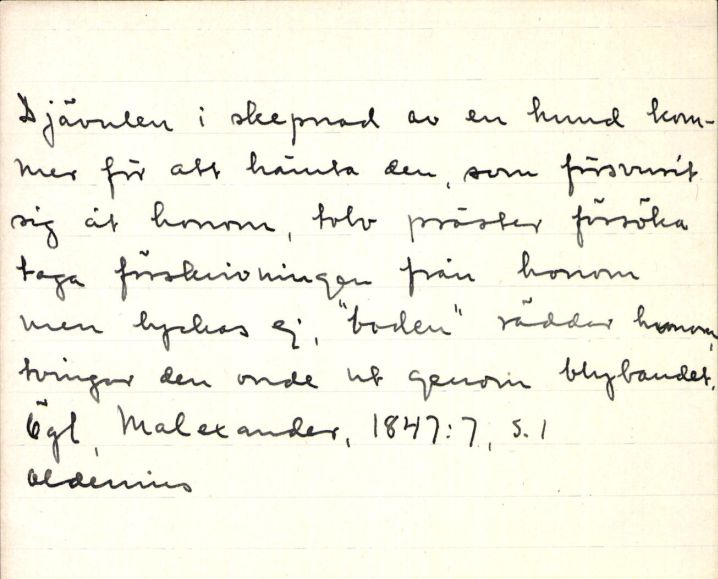 Djävulen i skepnad av en hund kom-
mer för att hämta den, som försvurit
sig åt honom, tolv präster försöka
taga förskrivningen från honom
men lyckas ej, "boden" räddar honom,
tvingar den onde ut genom blybandet.
Ögl, Malexander, 1847:7, S. 1